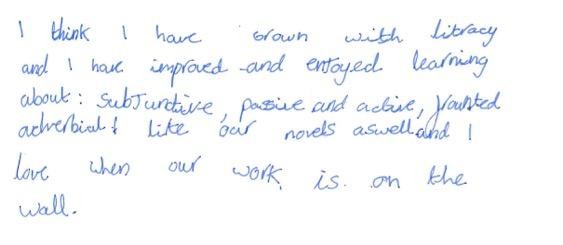 I think I have grown with litracy
and I have improved and entoyed learning
about: SubJunctive, passive and active, fraunted
adverbial I like our novels aswell and I
love when our work is on the
wall.